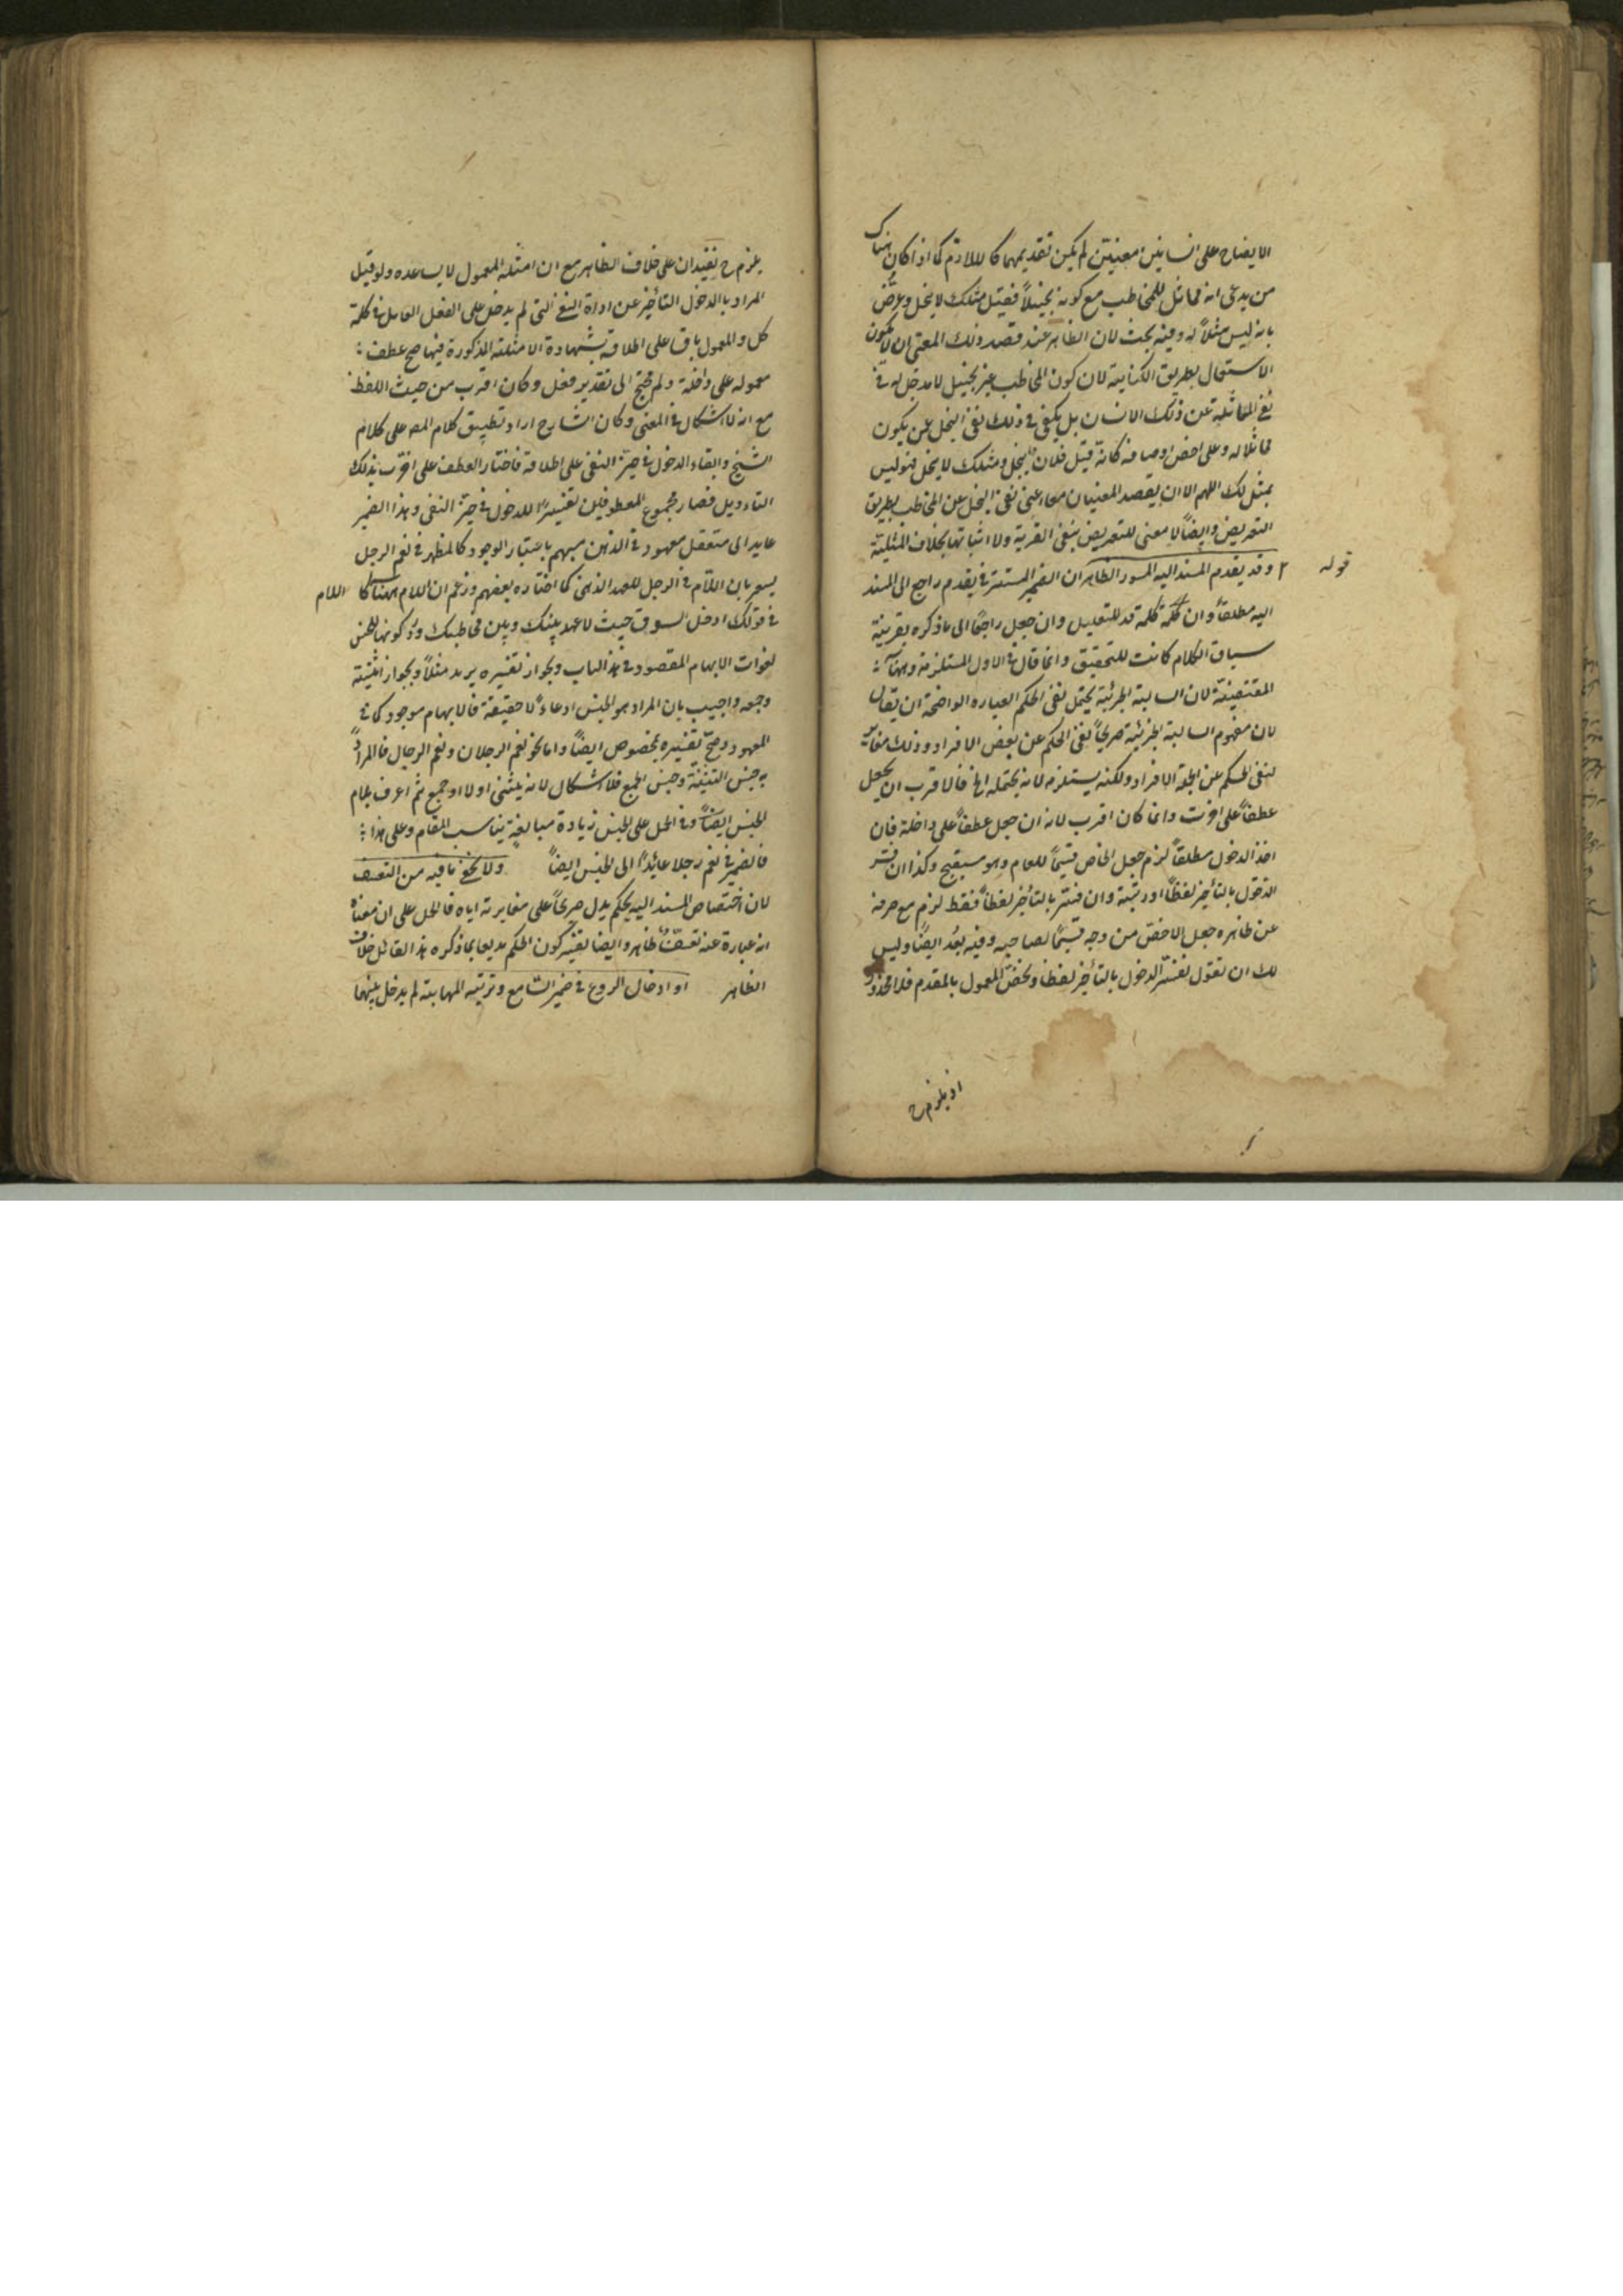 الايضاح على انسانين معينين لم يكن تقديمهما كاللازم كما اذا كان هناك
من يدعى انه مماثل للمخاطب مع كونه بخيلاً فقيل مثلك لا يبخل وعرّض
بانه ليس مثلاً له وفيه بحث لان الظاهر عند قصد ذلك المعنى ان لا يكون
الاستعمال بطريق الكناية لان كون المخاطب غير بخيل لا مدخل له فى
نفى المماثلة عن ذلك الانسان بل يكفى فى ذلك نفى البخل عمن يكون
مماثلا له وعلى اخص اوصافه كانه قيل فلان يبخل ومثلك لا يبخل فليس
بمثل لك اللهم الا ان يقصد المعنيان معا اعنى نفى البخل عن المخاطب بطريق
التعريض وايضاً لا معنى للتعريض بنفى الغيرية ولا اثباتها بخلاف المثلية
قوله وقد يقدم المسند اليه المسور الظاهر ان الضمير المستتر فى يقدم راجع الى المسند
اليه مطلقاً وان كلمة قد للتقليل وان جعل راجعاً الى ما ذكره بقرينة
سياق الكلام كانت للتحقيق وانما قال فى الاول المستلزمة وههنا
المقتضية لان السالبة الجزئية يحتمل نفى الحكم العبارة الواضحة ان يقال
لان مفهوم السالبة الجزئية صريحاً نفى الحكم عن بعض الافراد وذلك مغاير
لنفى الحكم عن جملة الافراد ولكنه يستلزمه لانه يحتمله الخ فالاقرب ان يجعل
عطفاً على اخرت وانما كان اقرب لانه ان جعل عطفاً على داخلة فان
اخذ الدخول مطلقاً لزم جعل الخاص قسيماً للعام وهو مستقبح وكذا ان فسّر
الدخول بالتأخير لفظاً او رتبة وان فسّر بالتأخير لفظاً فقط لزم مع صرفه
عن ظاهره جعل الاخص من وجه قسيماً لصاحبه وفيه بُعد ايضاً وليس
لك ان تقول نفسّر الدخول بالتأخير لفظا ونخص المعمول بالمقدم فلا محذور
اذ يلزم ح
يلزم ح تقييدان على خلاف الظاهر مع ان امثلة المعمول لا يساعده ولو قيل
المراد بالدخول التأخير عن اداة النفى التى لم يدخل على الفعل العامل فى كلمة
كل والمعمول باق على اطلاقه بشهادة الامثلة المذكورة فيها صح عطف
معموله على داخلة ولم يحتج الى تقدير فعل وكان اقرب من حيث اللفظ
مع انه لا اشكال فى المعنى وكان الشارح اراد تطبيق كلام المص على كلام
الشيخ وابقاء الدخول فى حيّز النفى على اطلاقه فاختار العطف على اخرت بذلك
التاءويل فصار مجموع المعطوفين تفسيراً للدخول فى حيّز النفى وهذا الضمير
عايد الى متعقل معهود فى الذهن مبهم باعتبار الوجود كالمظهر فى نعم الرجل
يسعر بان اللام فى الرجل للعهد الذهنى كما اختاره بعضهم وزعم ان اللام ههنا كا اللام
فى قولك ادخل السوق حيث لا عهد بينك وبين مخاطبك وردّ كونها للجنس
لفوات الابهام المقصود فى هذا الباب وبجواز تفسيره بزيد مثلاً وبجواز تثنيته
وجمعه واجيب بان المراد هو الجنس ادعاءً لا حقيقة فالابهام موجود كما فى
المعهود وصحّ تفسيره بمخصوص ايضاً واما نحو نعم الرجلان ونعم الرجال فالمراد
به جنس التثنية وجنس الجمع فلا اشكال لانه يثنى اولا او جمع ثم اعرف بلام
الجنس ايضاً وفى الحمل على الجنس زيادة مبالغة يناسب المقام وعلى هذا
فالضمير فى نعم رجلا عائداً الى الجنس ايضاً ولا يخفى ما فيه من التعسف
لان اختصاص المسند اليه بحكم يدل صريحاً على مغايرته اياه فالحمل على ان معناه
انه عبارة عنه تعسّف ظاهر وايضا تفسير كون الحكم بديعا بما ذكره هذا القائل خلاف
الظاهر او ادخال الروع فى ضمير السامع وتربية المهابة لم يدخل بينهما